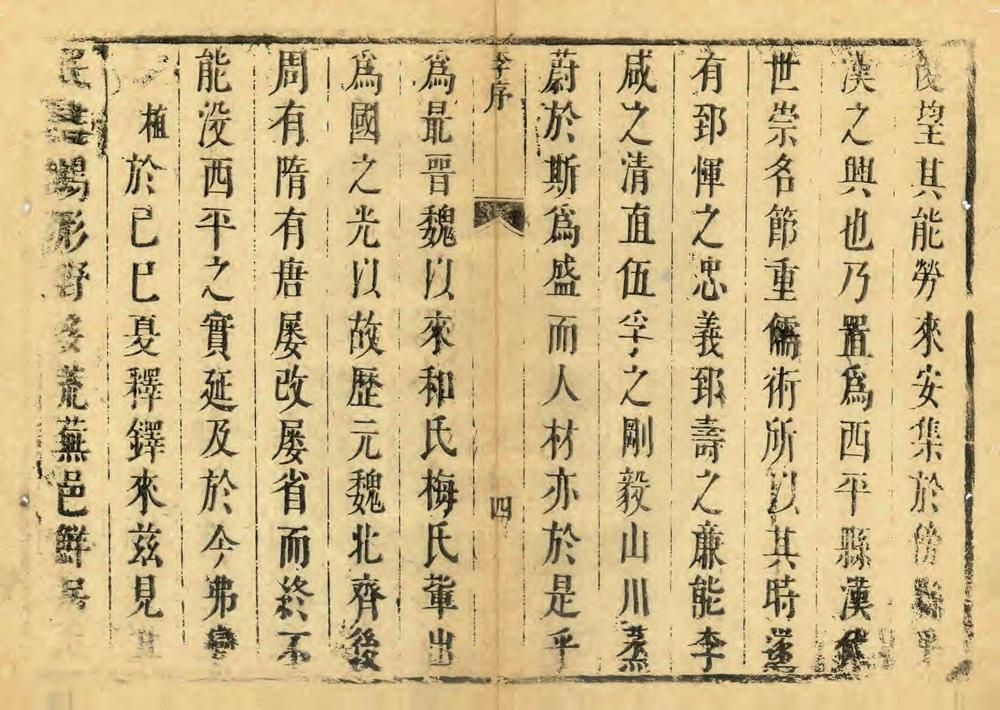 民望其能勞來安集於傍縣乎
漢之興也乃置爲西平縣漢
世崇名節重儒術所以其時
有郅惲之忠義郅壽之廉能李
咸之清直伍孚之剛毅山川
蔚於斯爲盛而人材亦於是乎
李序
四
爲最晋魏以來和氏梅氏輩出
爲國之光以故歷元魏北齊後
周有隋有唐屡改屡省而終不
能没西平之實延及於今弗
植於已巳夏釋鐸來兹見
荒蕪邑鮮居